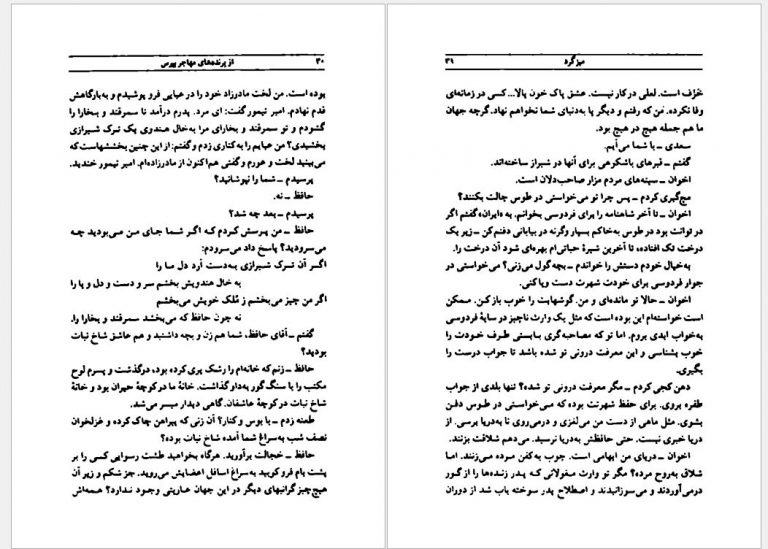 میزگرد ۲۹
خَرَف است. لعلی در کار نیست. عشق پاک خون پالا...کسی در زمانه‌ای
وفا نکرده. من که رفتم و دیگر پا به‌دنیای شما نخواهم نهاد. گرچه جهان
ما هم جمله هیچ در هیچ بود.
سعدی ــ با شما می‌آیم.
گفتم ــ قبرهای باشکوهی برای آنها در شیراز ساخته‌اند.
اخوان ــ سینه‌های مردم مزار صاحب‌دلان است.
مچ‌گیری کردم ــ پس چرا تو می‌خواستی در طوس چالت بکنند؟
اخوان ــ تا آخر شاهنامه را برای فردوسی بخوانم. به «ایران» گفتم اگر
در توانت بود در طوس به‌خاکم بسپار وگرنه در بیابانی دفنم‌کن ــ زیر یک
درخت تک افتاده، تا آخرین شیرهٔ حیاتی‌ام بهره‌ای شود آن درخت را.
به‌خیال خودم دستش را خواندم ــ بچه‌گول می‌زنی؟ می‌خواستی در
جوار فردوسی برای خودت شهرت دست وپاکنی.
اخوان ــ حالا تو مانده‌ای و من. گوشهایت را خوب بازکن. ممکن
است خواسته‌ام این بوده است که مثل یک وارث ناچیز در سایهٔ فردوسی
به‌خواب ابدی بروم. اما تو که مصاحبه‌گری بایستی طرف خودت را
خوب بشناسی و این معرفت درونی تو شده باشد تا جواب درست را
بگیری.
دهن کجی کردم ــ مگر معرفت درونی تو شده؟ تنها بلدی از جواب
طفره بروی. برای حفظ شهرتت بوده که می‌خواستی در طوس دفن
بشوی. مثل ماهی از دست من می‌لغزی و درمی‌روی تا به‌دریا برسی. از
دریا خبری نیست. حتی حافظش به‌دریا نرسید. می‌دهم شلاقت بزنند.
اخوان ــ دریای من ابهامی است. چوب به‌کفن مرده می‌زنند.
شلاق به‌روح مرده؟ مگر تو وارث مغولانی که پدر زنده‌ها را از گور
درمی‌آوردند و می‌سوزانیدند و اصطلاح پدر سوخته باب شد از دوران
۳۰ از پرنده‌های مهاجر بپرس
بوده است. من لخت مادرزاد خود را در عبایی فرو پوشیدم و به‌بارگاهش
قدم نهادم. امیر تیمور گفت: ای مرد. پدرم درآمد تا سمرقند و بخارا را
گشودم و تو سمرقند و بخارای مرا به‌خال هندوی یک ترک شیرازی
بخشیدی؟ من عبایم را به‌کناری زدم و گفتم: از این چنین بخششهاست که
می‌بینید لخت و عورم و گفتی هم‌اکنون از مادرزاده‌ام. امیر تیمور خندید.
پرسیدم ــ شما را نپوشانید؟
حافظ ــ نه.
پرسیدم ــ بعد چه شد؟
حافظ ــ من پرسش کردم که اگر شما جای من می‌بودید چه
می‌سرودید؟ پاسخ داد می‌سرودم:
اگر آن ترک شیرازی به‌دست آرد دل ما را
به خال هندویش بخشم سر و دست و دل و پا را
اگر من چیز می‌بخشم ز مُلک خویش می‌بخشم
نه چون حافظ که می‌بخشد سمرقند و بخارا را.
گفتم ــ آقای حافظ، شما هم زن و بچه داشتید و هم عاشق شاخ نبات
بودید؟
حافظ ــ زنم‌که خانه‌ام را رشک پری کرده بود، درگذشت و پسرم لوح
مکتب را با سنگ گور به‌دل‌و‌گذاشت. خانهٔ ما درکوچهٔ حیران بود و خانهٔ
شاخ نبات درکوچهٔ عاشقان. گاهی دیدار میسر می‌شد.
طعنه زدم ــ با بوس و کنار؟ آن زنی که پیراهن چاک کرده و غزلخوان
نصف شب به‌سراغ شما آمده شاخ نبات بوده؟
حافظ ــ خجالت برآورید. هرگاه بخواهید طشت رسوایی کسی را بر
پشت بام فروکوبید به‌سراغ اسافل اعضایش می‌روید. جز شکم و زیر آن
هیچ‌چیزگرانبهای دیگر در این جهان عاریتی وجود ندارد؟ همه‌اش